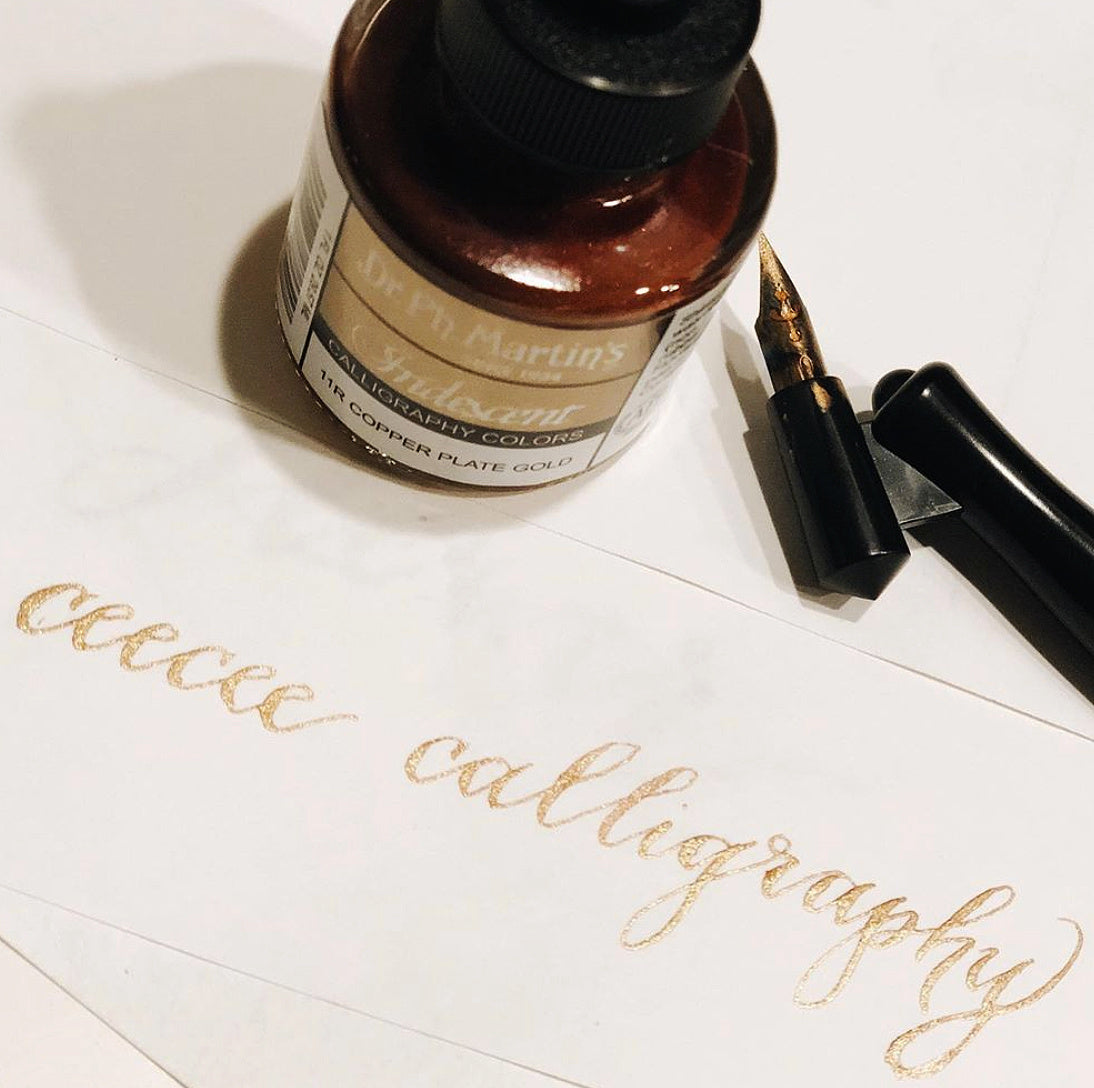 Dr. Ph. Martin's
Iridescent
CALLIGRAPHY COLORS
11R COPPER PLATE GOLD
ceecee calligraphy